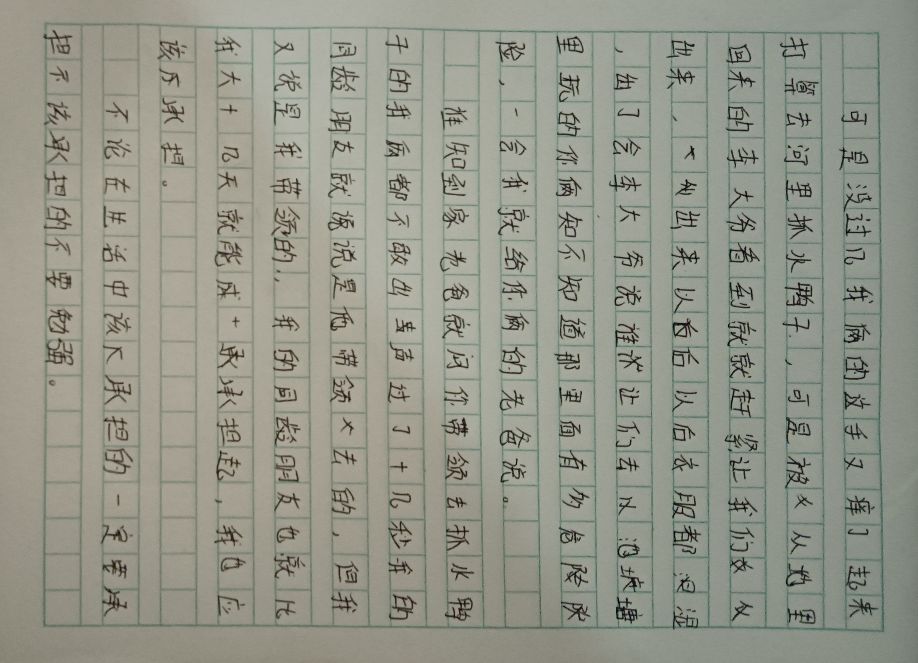 可是没过几我俩的这手又痒了起来
打算去河里抓水鸭子，可是被又从地里
回来的车大爷看到就就赶紧让我们女从
出来，又叫出来以看后以后衣服都没湿
，出了会车大爷说谁让们去以泡坡塘
里玩的你俩知不知道那里面有多危险
险，一会我就给你俩的老爸说。
谁知到家老爸就问你带领去抓水鸭
子的我两都不敢出声过了十几秒我的
同龄朋友就诬说是他带领又去的，但我
又说是我带领的，我的同龄朋友也就比
我大十几天就能成十承承担起，我也应
该承担。
不论在生活中该承担的一定要承
担不该承担的不要勉强。